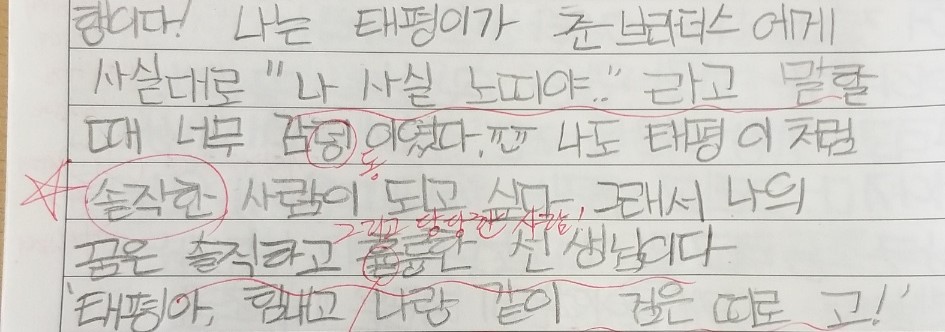 행이다! 나는 태평이가 츤브라더스에게
사실대로 "나 사실 노띠야.." 라고 말할
때 너무 감덩이였다.ㅠㅠ 나도 태평이처럼
동.
솔작한 사람이 되고 싶다. 그래서 나의
그리고 당당한 사람!
꿈은 솔직하고 훌륭한 선생님이다
'태평아, 힘내고 나랑 같이 검은 띠로 고!'